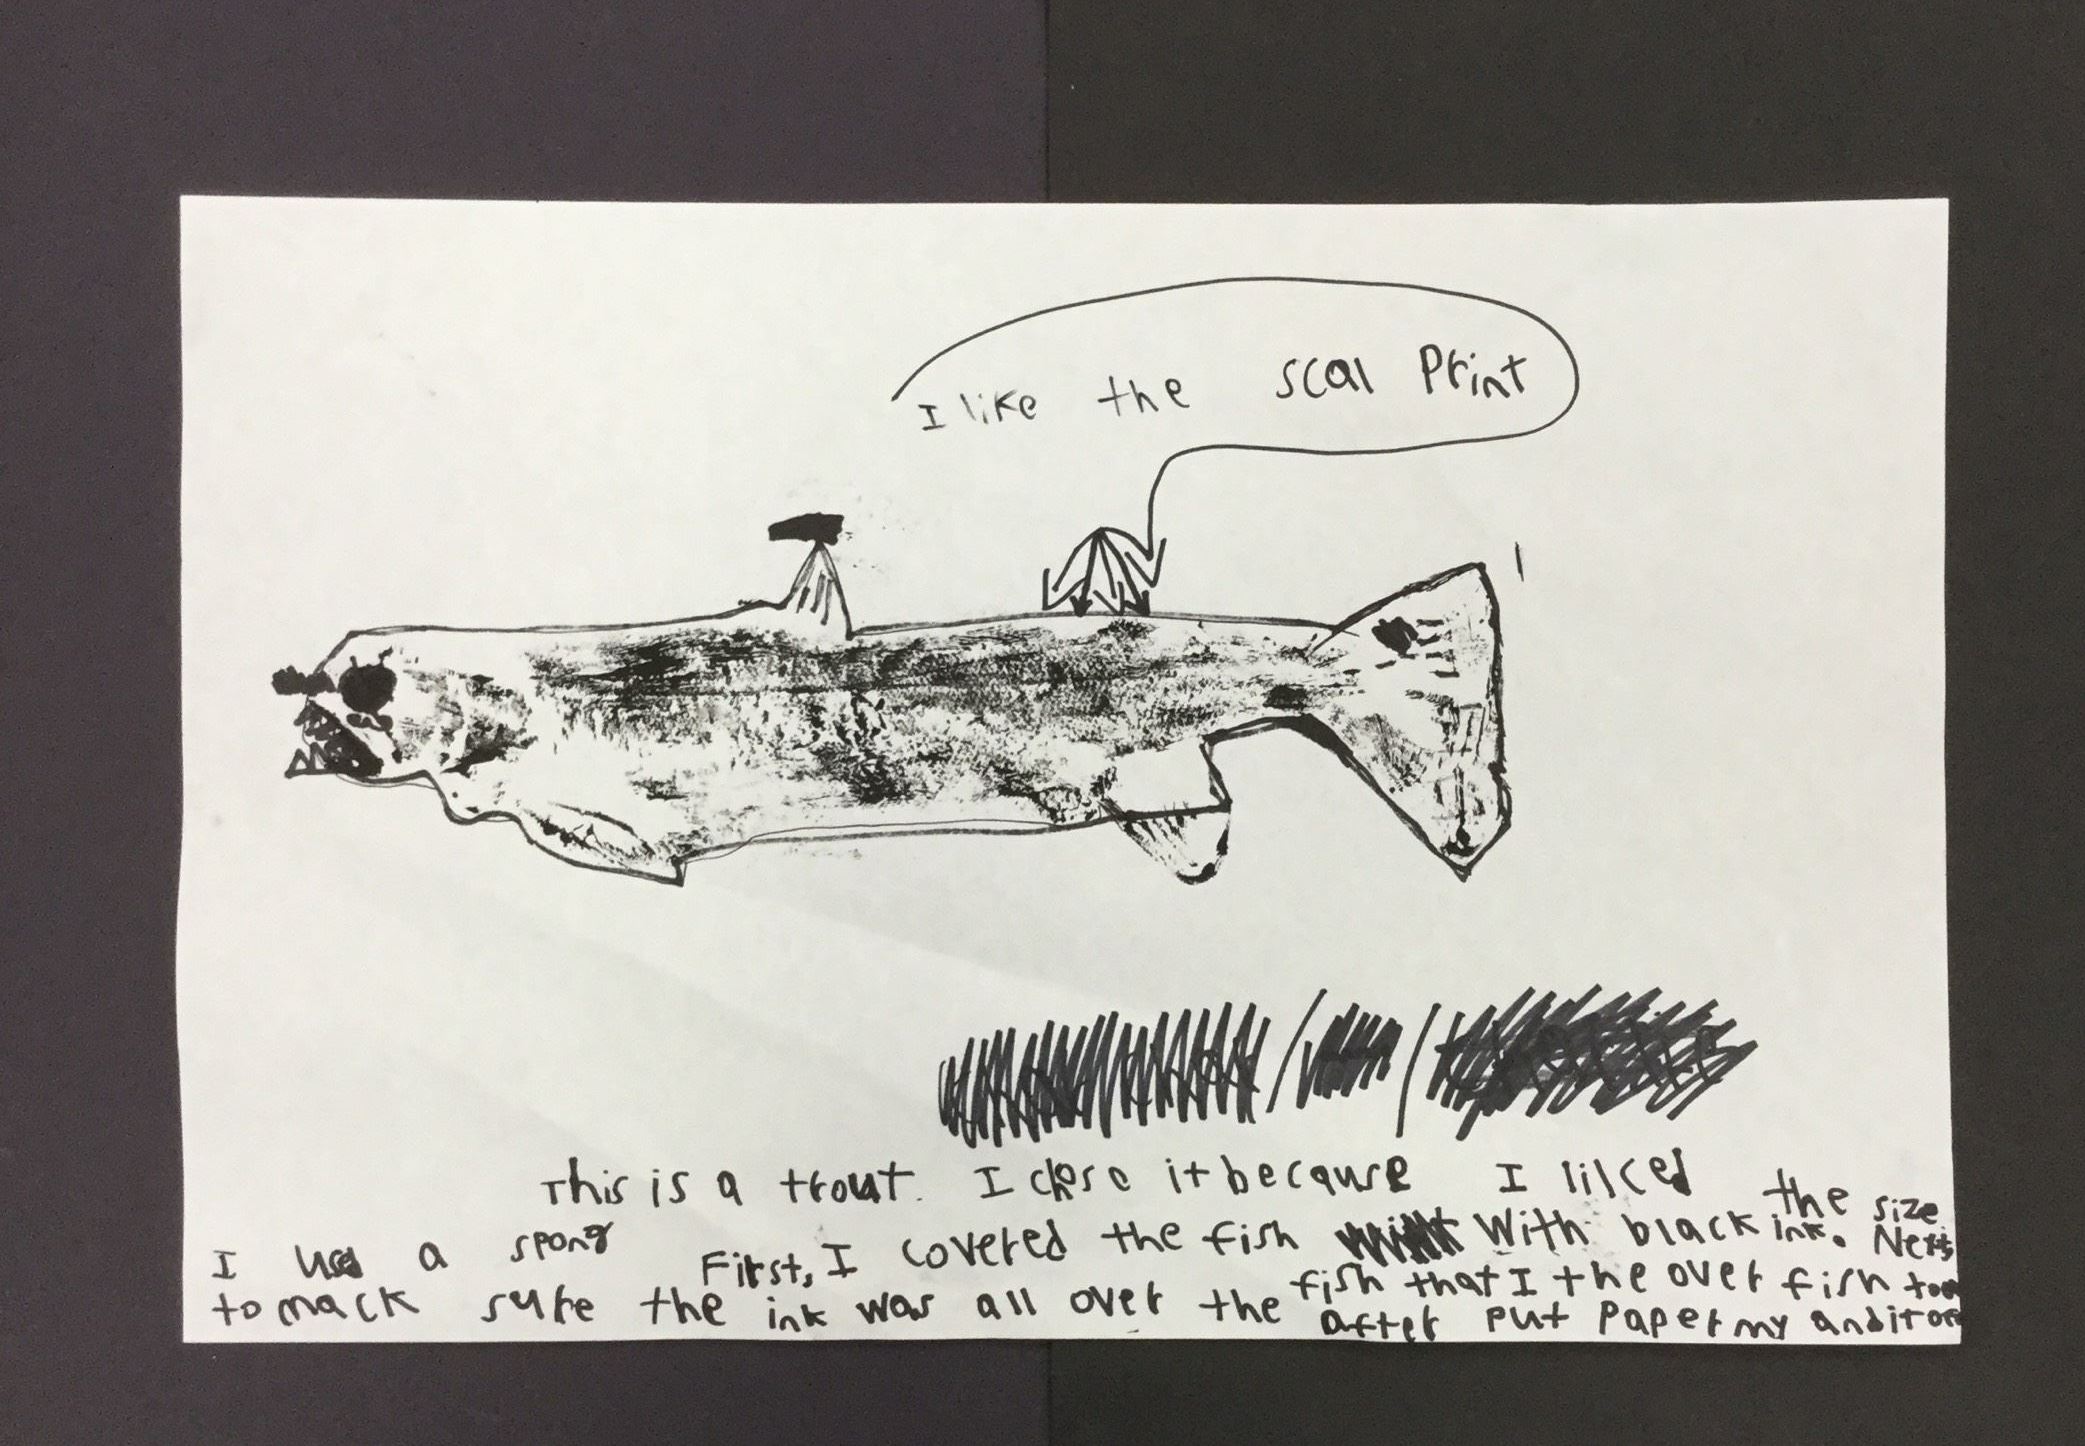 I like the scal Print
This is a trout. I chose it because I liked the size
I used a spong First, I covered the fish With black ink. Next,
to mack sure the ink was all over the fish that I the over fish too
after put Paper my andit